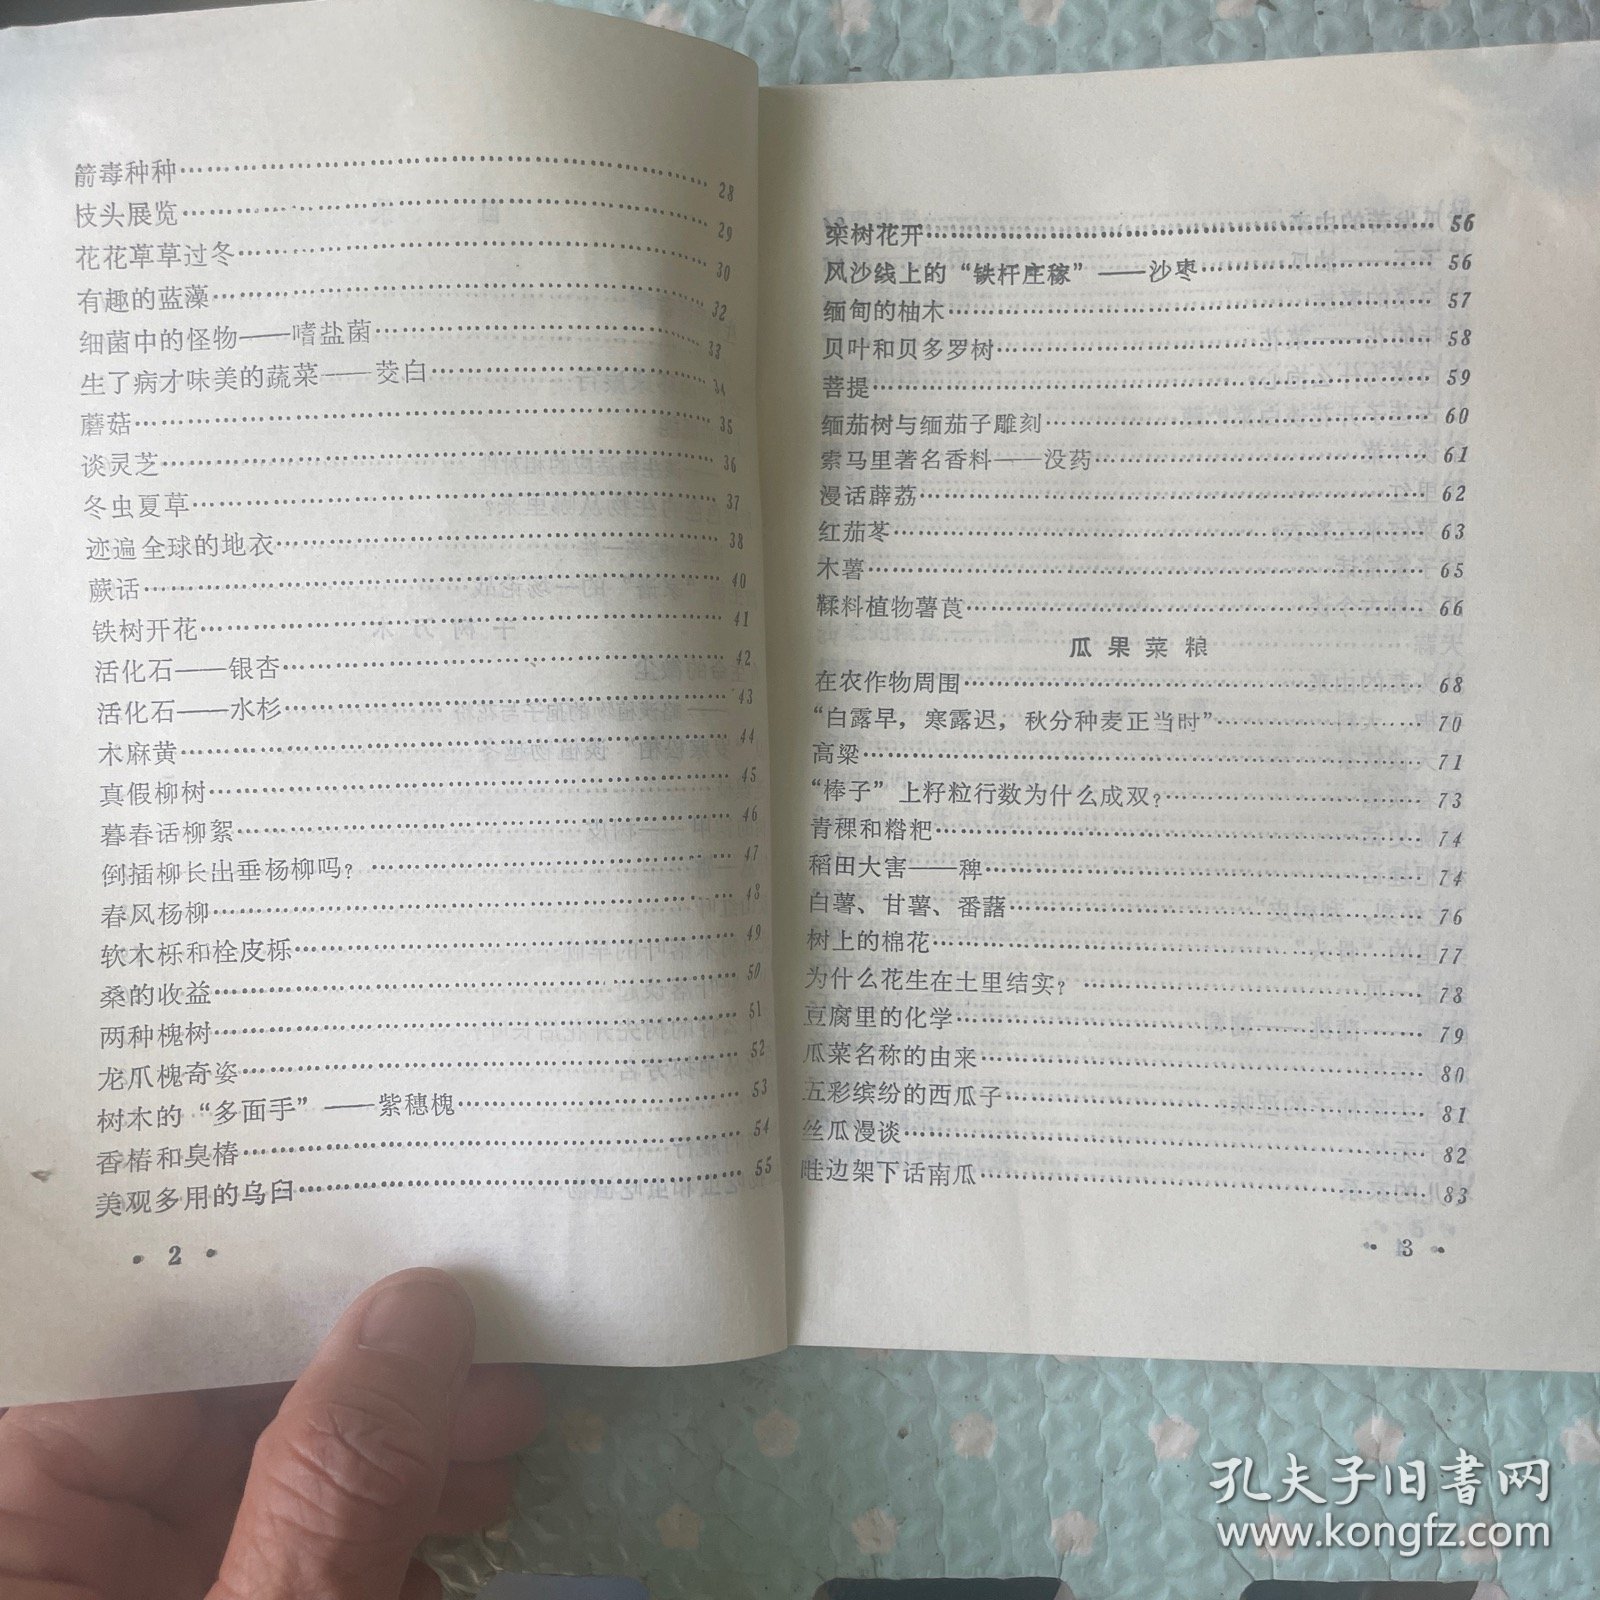 箭毒种种……28
枝头展览……29
花花草草过冬……30
有趣的蓝藻……32
细菌中的怪物——嗜盐菌……33
生了病才味美的蔬菜——茭白……34
蘑菇……35
谈灵芝……36
冬虫夏草……37
迹遍全球的地衣……38
蕨话……40
铁树开花……41
活化石——银杏……42
活化石——水杉……43
木麻黄……44
真假柳树……45
暮春话柳絮……46
倒插柳长出垂杨柳吗？……47
春风杨柳……48
软木栎和栓皮栎……49
桑的收益……50
两种槐树……51
龙爪槐奇姿……52
树木的“多面手”——紫穗槐……53
香椿和臭椿……54
美观多用的乌臼……55
• 2 •
栾树花开……56
风沙线上的“铁杆庄稼”——沙枣……56
缅甸的柚木……57
贝叶和贝多罗树……58
菩提……59
缅茄树与缅茄子雕刻……60
索马里著名香料——没药……61
漫话薜荔……62
红茄苳……63
木薯……65
鞣料植物薯莨……66
瓜果菜粮
在农作物周围……68
“白露早，寒露迟，秋分种麦正当时”……70
高粱……71
“棒子”上籽粒行数为什么成双？……73
青稞和糌粑……74
稻田大害——稗……74
白薯、甘薯、番藷……76
树上的棉花……77
为什么花生在土里结实？……78
豆腐里的化学……79
瓜菜名称的由来……80
五彩缤纷的西瓜子……81
丝瓜漫谈……82
畦边架下话南瓜……83
• 3 •
孔夫子旧书网
www.kongfz.com